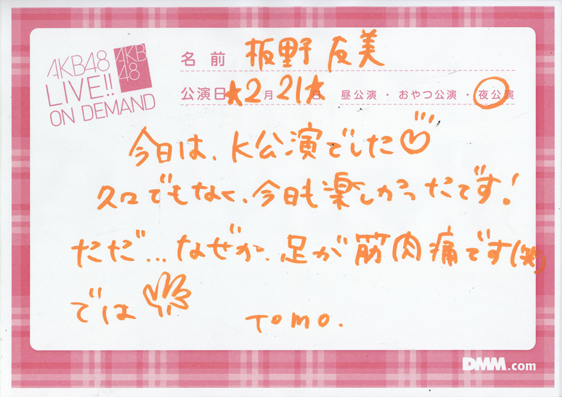 AKB48
LIVE!!
ON DEMAND
AKB
48
名前 板野友美
公演日 ★2月21★日 昼公演・おやつ公演・夜公演
今日は、K公演でした♡
久々でもなく、今日も楽しかったです!
ただ...なぜか、足が筋肉痛です(笑)
では
TOMO.
DMM.com